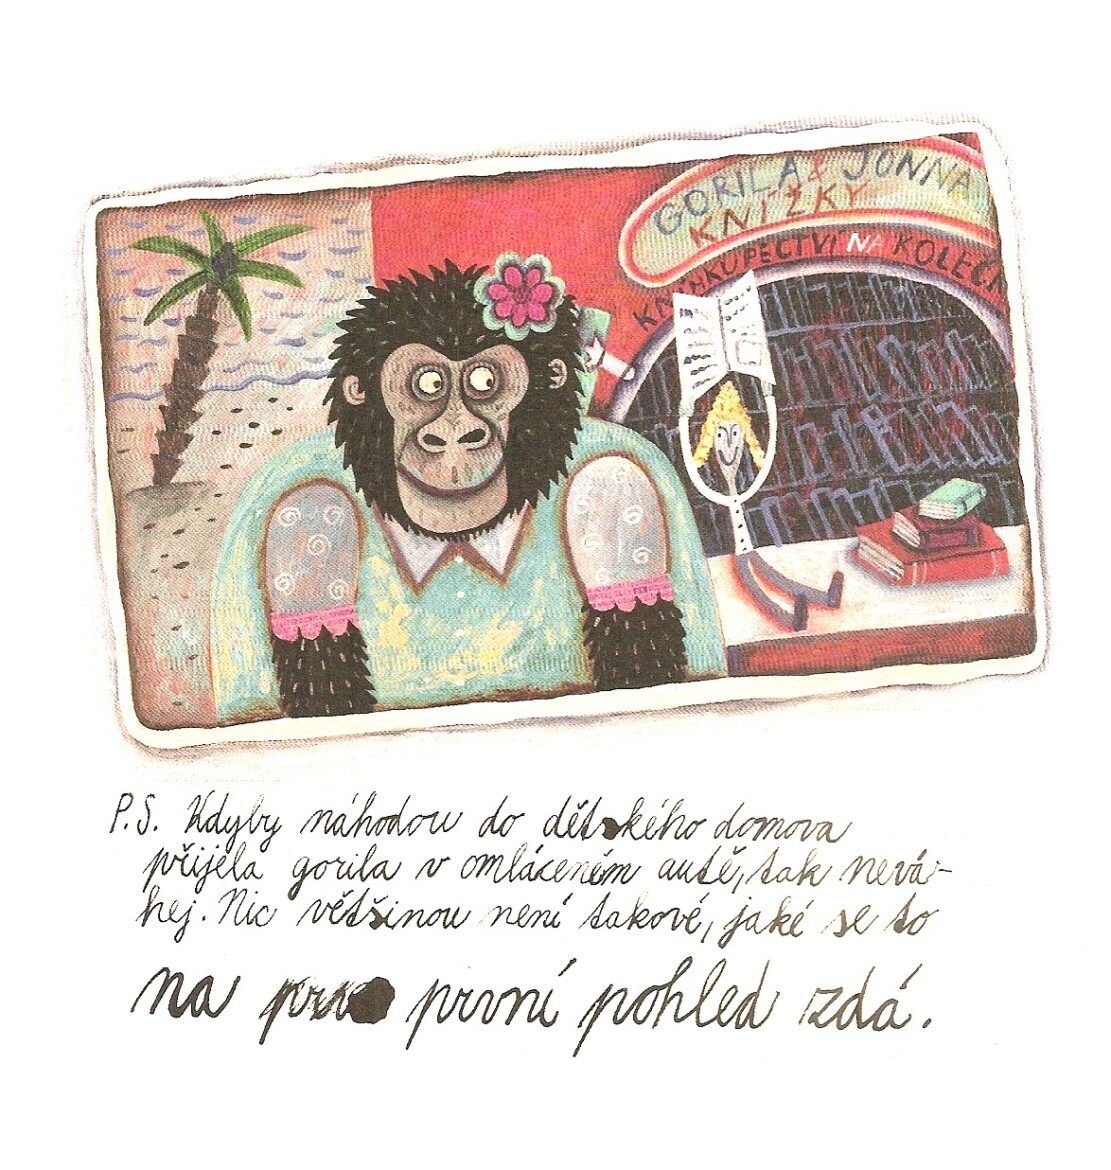 GORILA & JONNA
KNÍŽKY
KNIHKUPECTVÍ NA KOLEČK
P.S. Kdyby náhodou do dětského domova
přijela gorila v omláceném autě, tak nevá-
hej. Nic většinou není takové, jaké se to
na prv první pohled zdá.